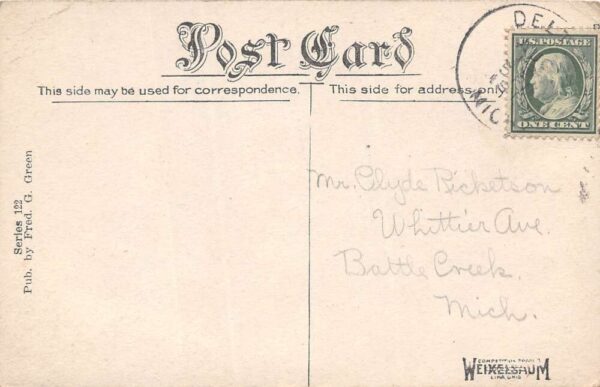 Post Card
This side may be used for correspondence.
This side for address only.
U.S. POSTAGE
ONE CENT
MICH
Series 122
Pub. by Fred. G. Green
Mr. Clyde Ricketson
Whittier Ave.
Battle Creek.
Mich.
WEIXELBAUM
LIMA, OHIO